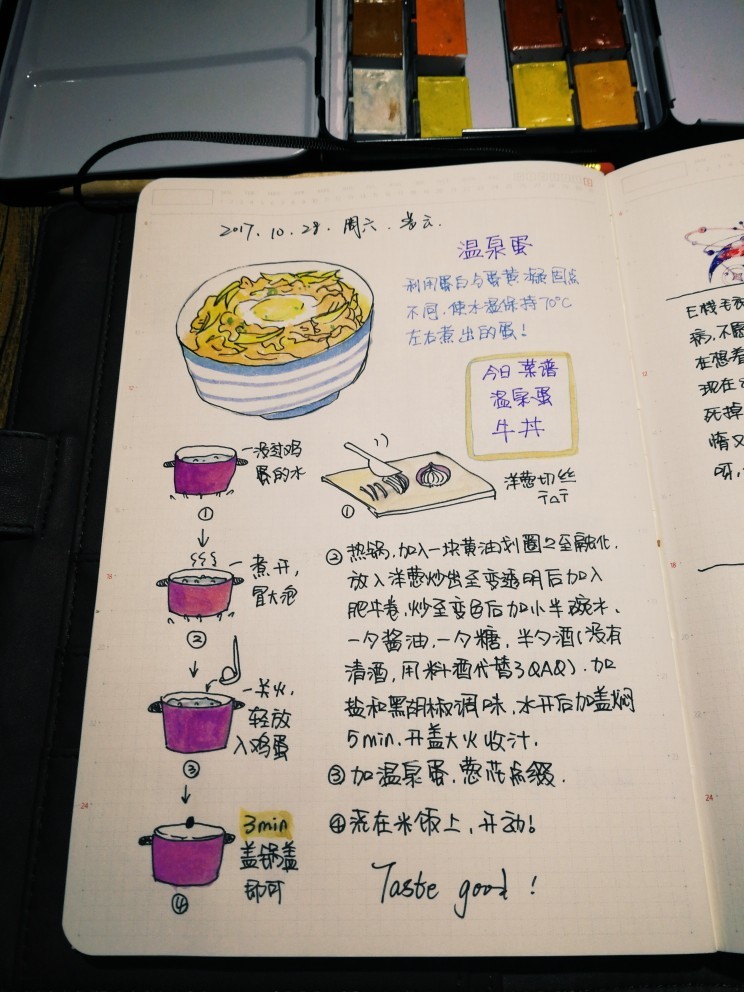 2017.10.28. 周六. 多云.
温泉蛋
利用蛋白与蛋黄凝固点
不同,使水温保持70℃
左右煮出的蛋!
今日菜谱
温泉蛋
牛丼
没过鸡
蛋的水
①
煮开,
冒大泡
②
关火,
轻放
入鸡蛋
③
3min
盖锅盖
即可
④
①
洋葱切丝
TaT
②热锅,加入一块黄油划圈圈至融化.
放入洋葱炒出至变透明后加入
肥牛卷,炒至变色后加小半碗水、
一勺酱油,一勺糖,半勺酒(没有
清酒,用料酒代替了QAQ).加
盐和黑胡椒调味,水开后加盖焖
5min.开盖大火收汁.
③加温泉蛋,葱花点缀.
④浇在米饭上,开动!
Taste good !
病,不愿
在想着
现在
死掉
情又
呀,
12
18
24
12
18
24